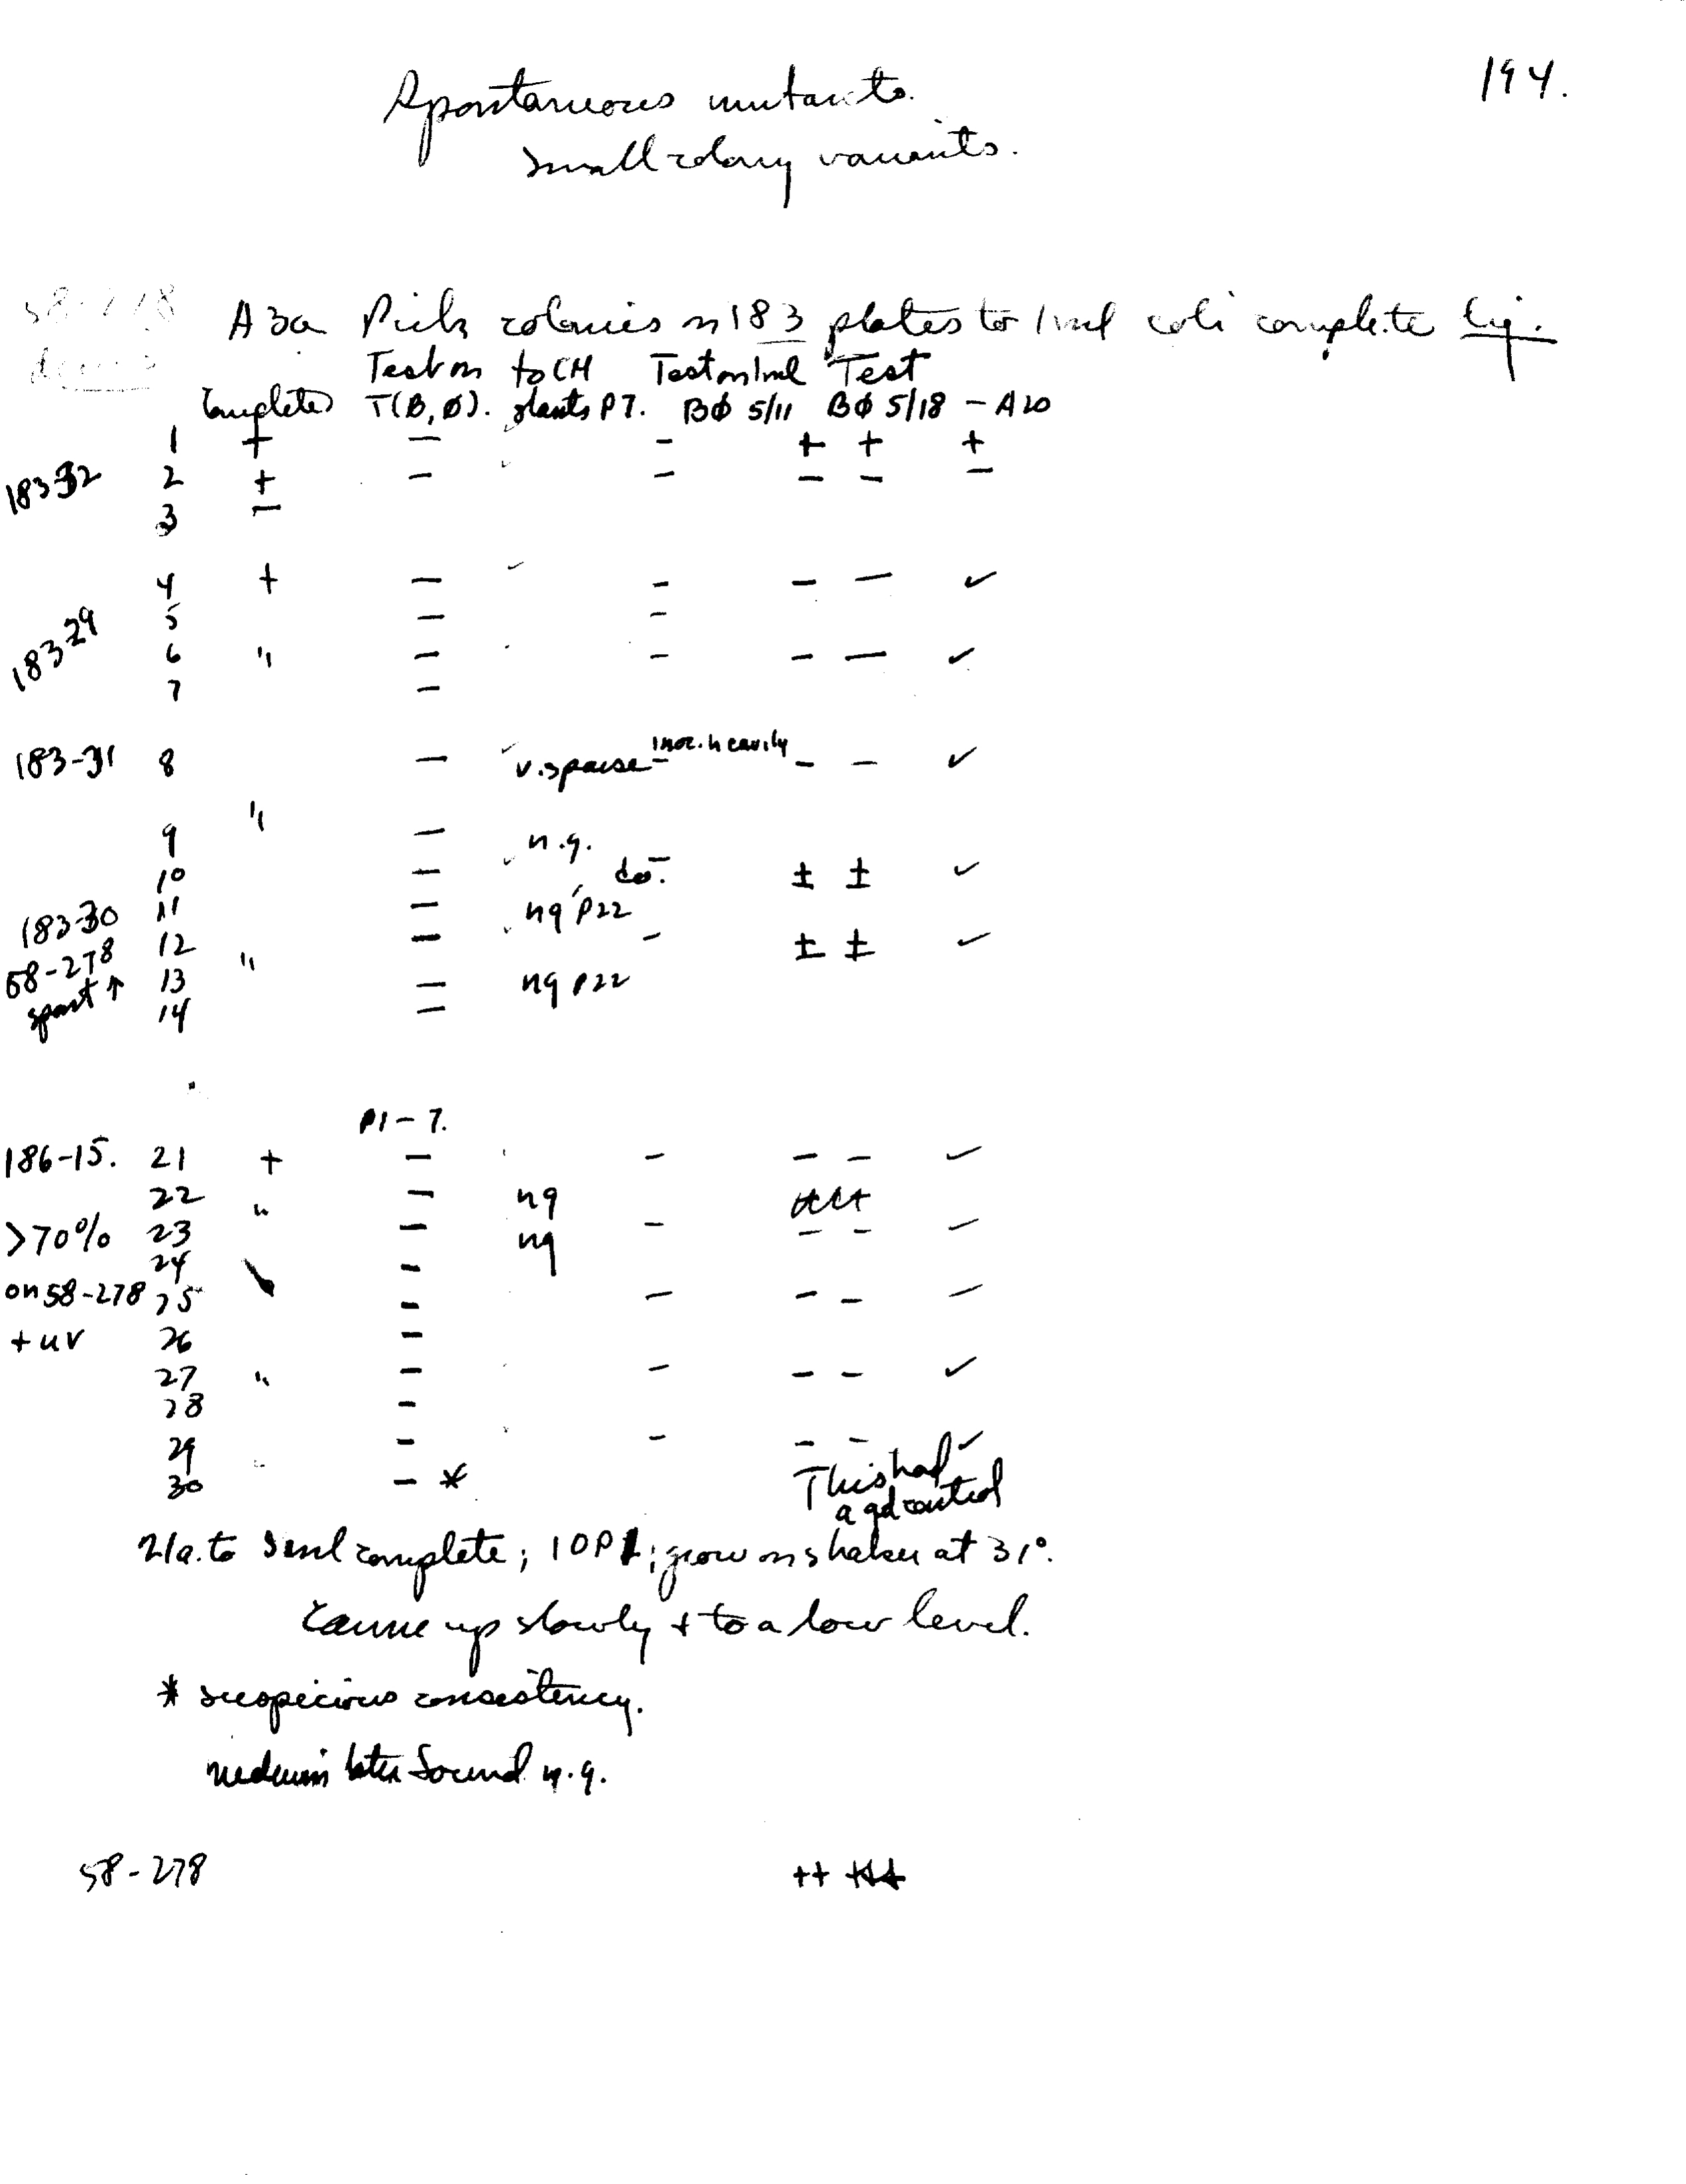 194.
Spontaneous mutants.
Small colony variants.
A3a Pick colonies n 183 plates to 1 ml coli complete liq.
Test on to CH Test on 1 ml Test
Complete T(B,Ø). slants P7. BØ 5/11 BØ 5/18 - A20
1 + - - + + +
183-32 2 + - - - - -
3 -
4 + - ✓ - - - ✓
5 - -
183-29 6 " - - - - ✓
7 -
183-31 8 - ✓ v. sparse - inoc. heavily - - ✓
"
9 - ✓ n.g.
10 - ✓ do. - ± ± ✓
183-30 11 - ng P22
58-278 12 - - ± ± ✓
spont ↑ 13 " - ng P22
14 -
P1-7.
186-15. 21 + - - - - ✓
22 " - ng
>70% 23 - ng - - - ✓
24 -
on 58-278 25 - - - - ✓
+ uv 26 -
27 " - - - - ✓
28 -
29 - - - - ✓
30 - * This had
a gd control
21a. to 5 ml complete; 10P1; grow on shaker at 31°.
Came up slowly + to a low level.
* suspicious consistency.
medium later found n.g.
58-278 ++